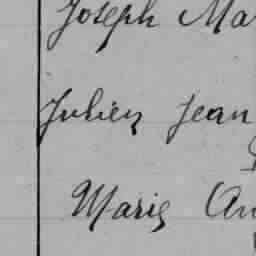 Joseph Ma
Julien Jean
Marie An